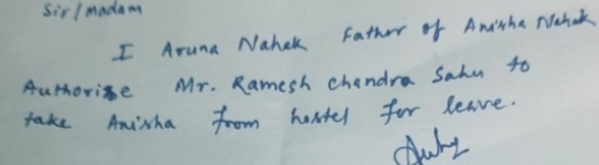 Sir/madam
I Aruna Nahak Father of Anisha Nahak
Authorise Mr. Ramesh Chandra Sahu to
take Anisha from hostel for leave.